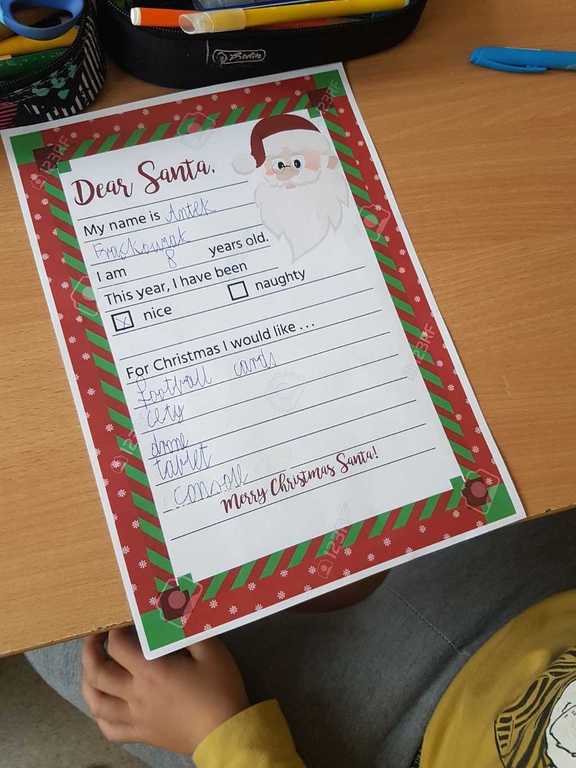 Herlitz
Dear Santa,
My name is Antek
I am 8 years old.
This year, I have been
nice naughty
For Christmas I would like ...
football cards
cety
drone
tablet
consoll
Merry Christmas Santa!
123RF
123RF
123RF
123RF